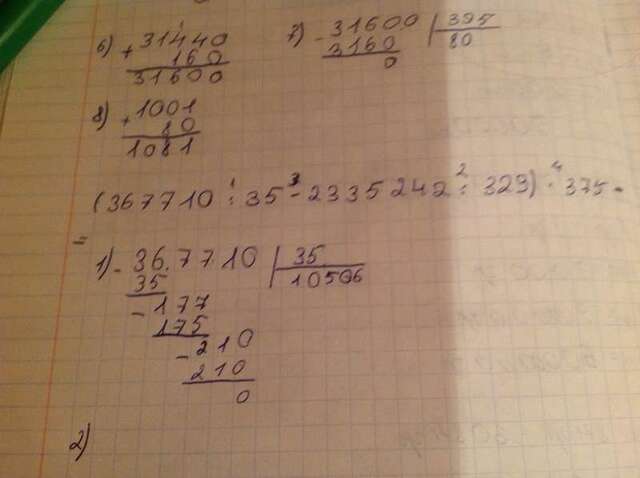 6) + 31440
160
31600
7) - 31600 | 395
3160 | 80
0
8) + 1001
80
1081
(367710 : 35 - 2335242 : 329) · 375 =
1 3 2 4
=
1) - 367710 | 35
35 | 10506
- 177
175
- 210
210
0
2)